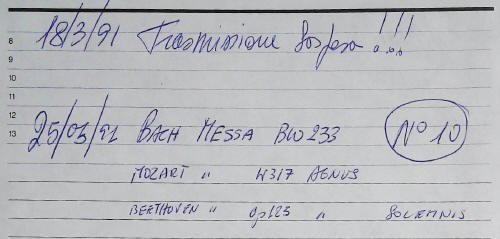 8 18/3/91 Trasmissione Sospesa !!!
9
10
11
12 25/03/91 BACH MESSA BW 233 N° 10
13
MOZART " K317 AGNUS
BEETHOVEN " Op 125 " SOLEMNIS